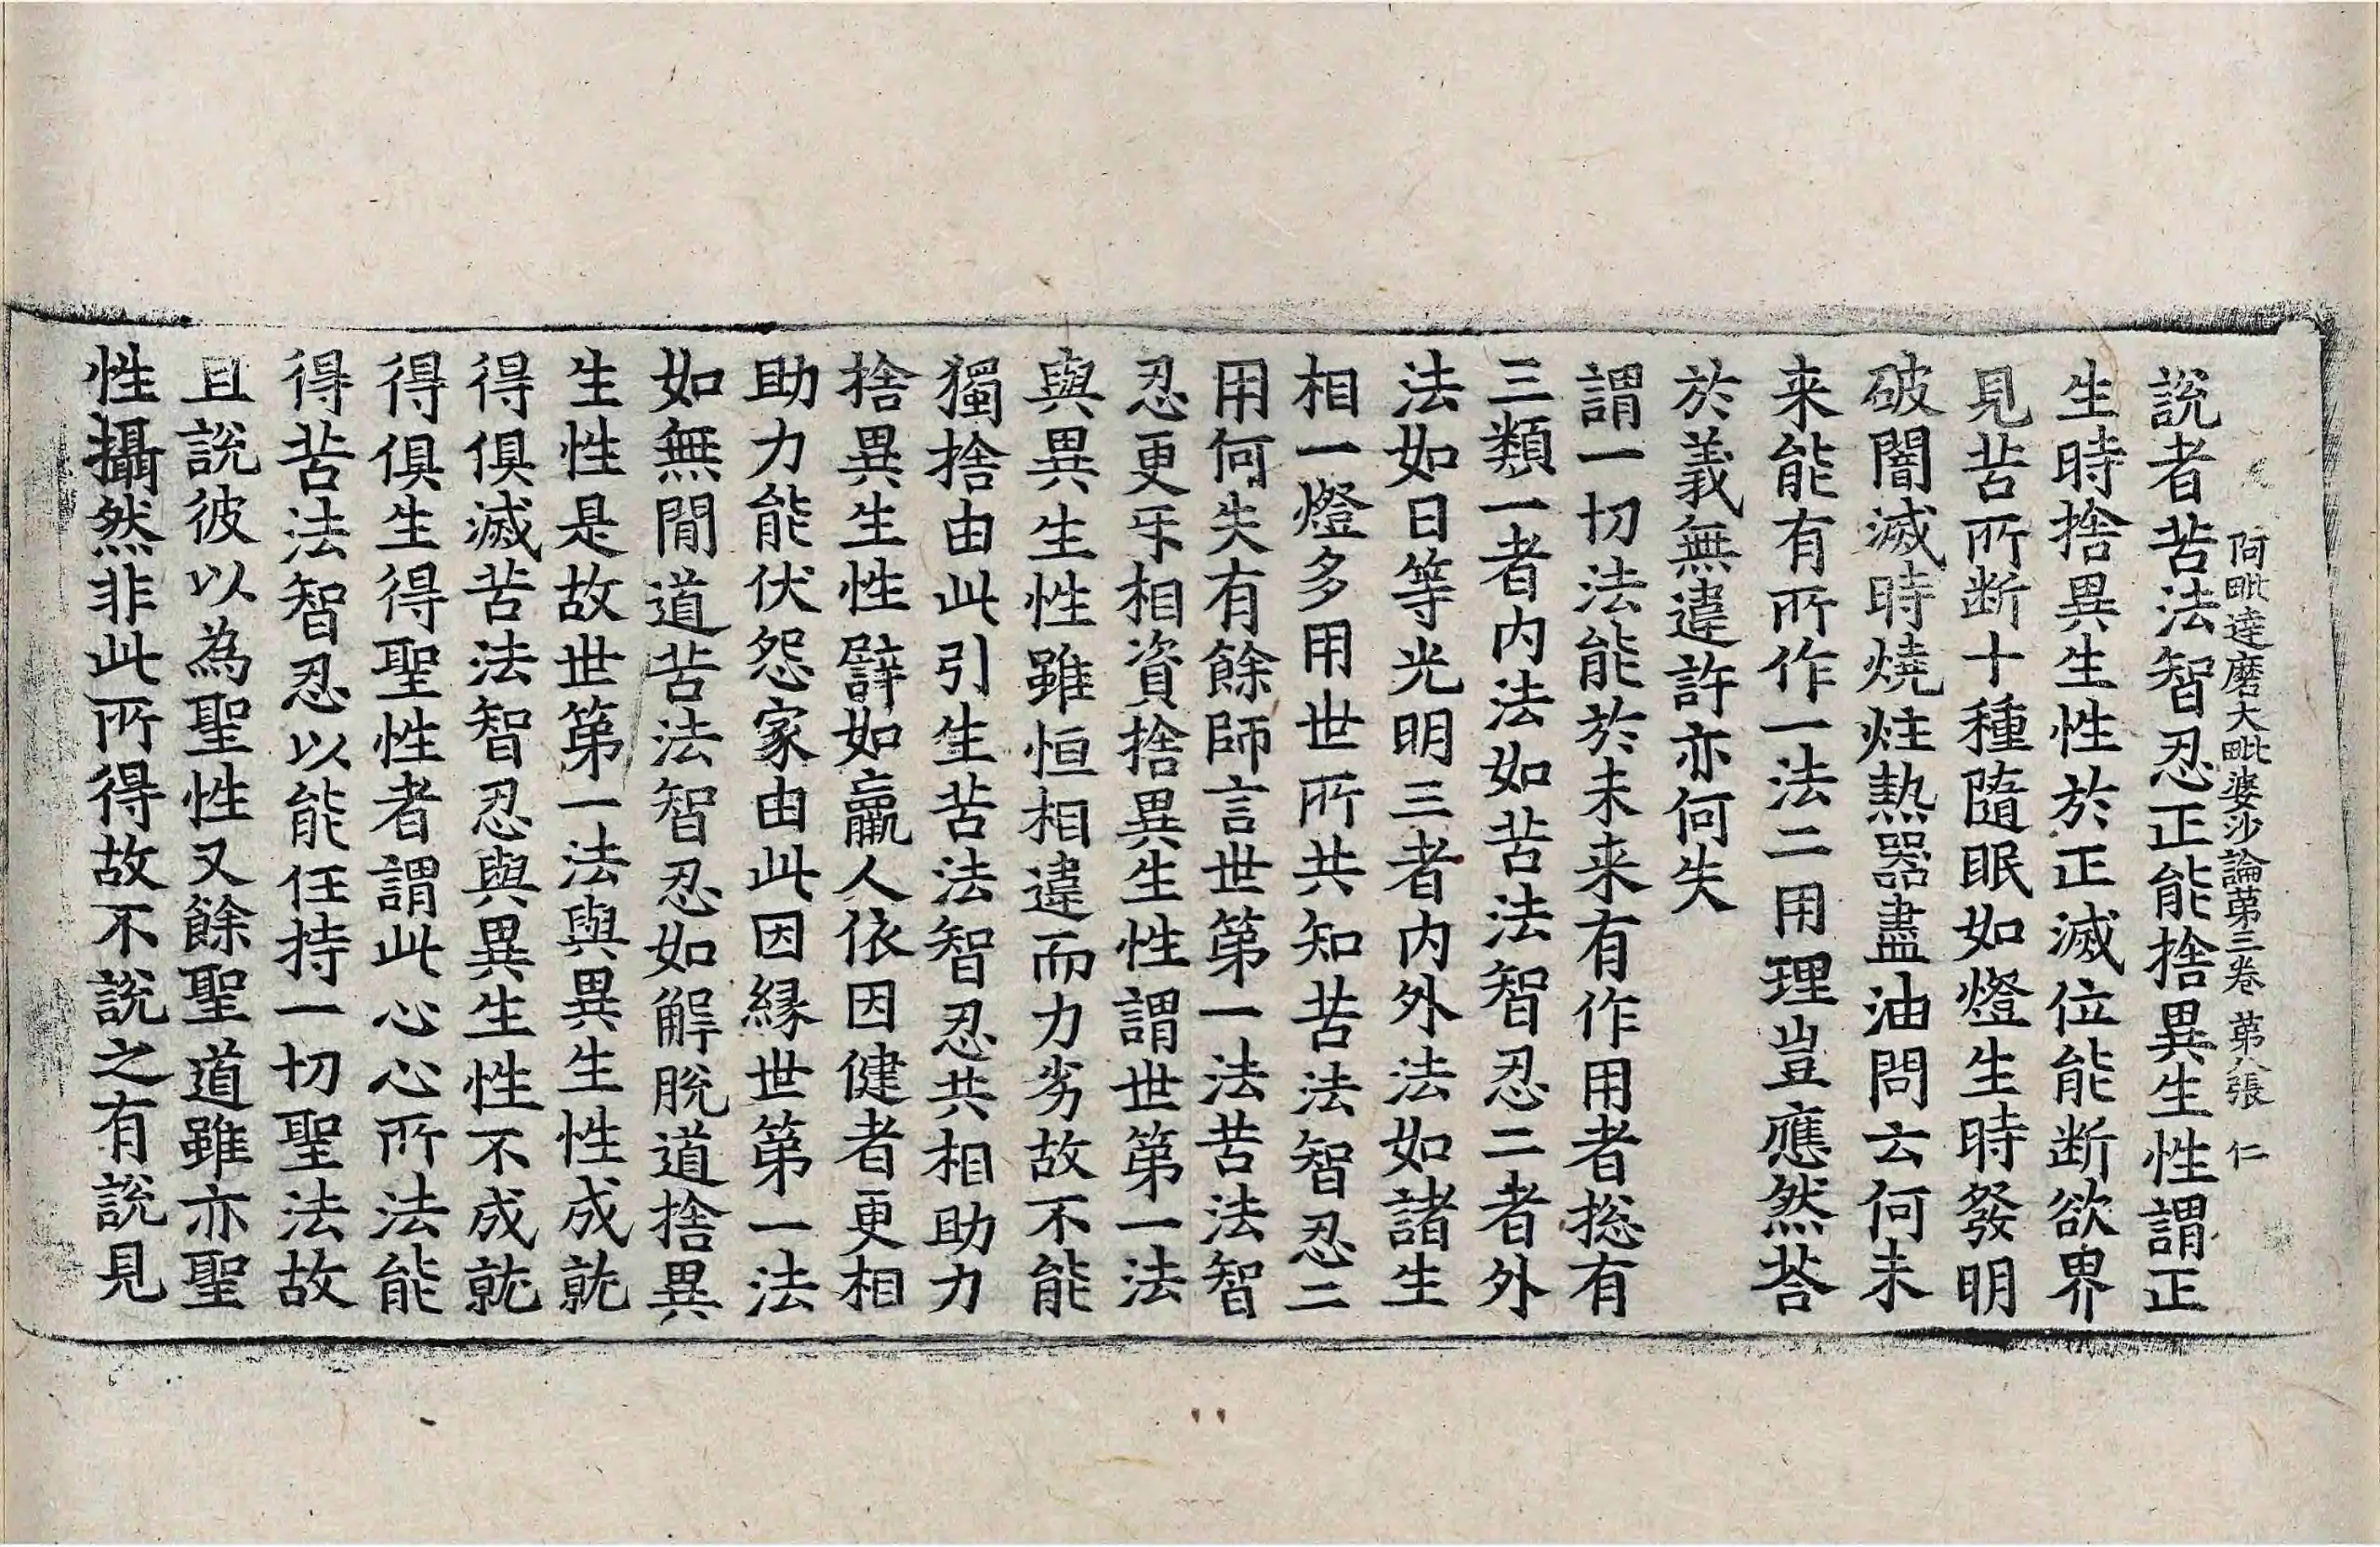 阿毗達磨大毗婆沙論第三卷 第八張 仁
說者苦法智忍正能捨異生性謂正
生時捨異生性於正滅位能断欲界
見苦所断十種隨眠如燈生時發明
破闇滅時燒炷熱器盡油問云何未
来能有所作一法二用理豈應然荅
於義無違許亦何失
謂一切法能於未来有作用者揔有
三類一者内法如苦法智忍二者外
法如日等光明三者内外法如諸生
相一燈多用世所共知苦法智忍二
用何失有餘師言世第一法苦法智
忍更㸦相資捨異生性謂世第一法
與異生性雖恒相違而力劣故不能
獨捨由此引生苦法智忍共相助力
捨異生性譬如羸人依因健者更相
助力能伏怨家由此因縁世第一法
如無閒道苦法智忍如解脫道捨異
生性是故世第一法與異生性成就
得俱滅苦法智忍與異生性不成就
得俱生得聖性者謂此心心所法能
得苦法智忍以能任持一切聖法故
且說彼以為聖性又餘聖道雖亦聖
性攝然非此所得故不說之有說見